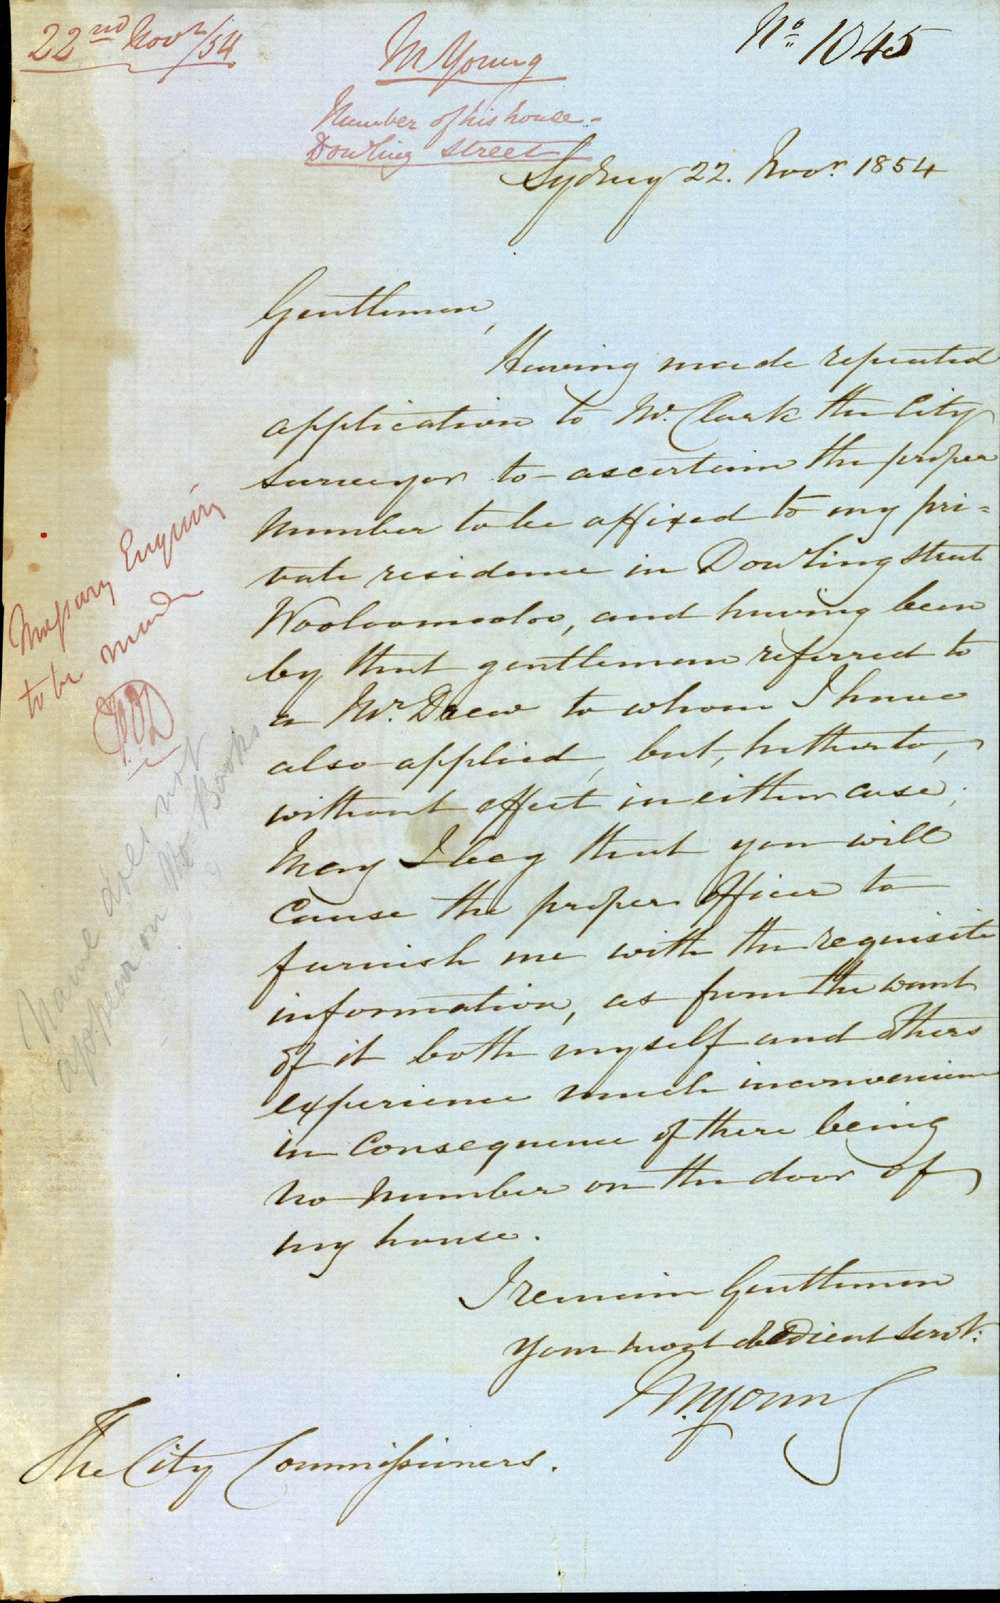 22nd Novr/54
M Young
No. 1045
Number of his house -
Dowling Street
Sydney 22. Novr. 1854
Gentlemen,
Having made repeated
application to Mr. Clark the City
Surveyor to ascertain the proper
Number to be affixed to my pri-
vate residence in Dowling Street
Wooloomooloo, and having been
by that gentleman referred to
a Mr. Drew to whom I have
also applied, but, hitherto,
without effect in either case;
May I beg that you will
Cause the proper Officer to
furnish me with the requisite
information, as from the want
of it both myself and others
experience much inconvenience
in Consequence of there being
no Number on the door of
my house.
I remain Gentlemen
Your most obedient Servt.
M. Young
The City Commissioners.
Necessary Enquiry
to be made
Name does not
appear on Books